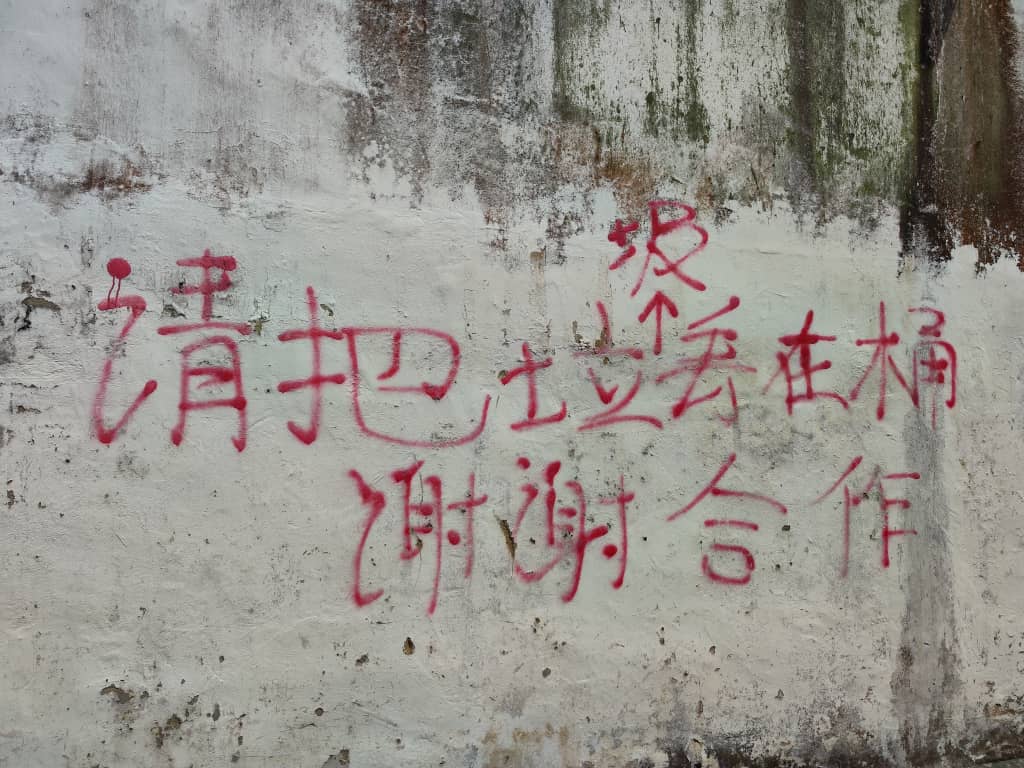 请把垃圾丢在桶
谢谢合作